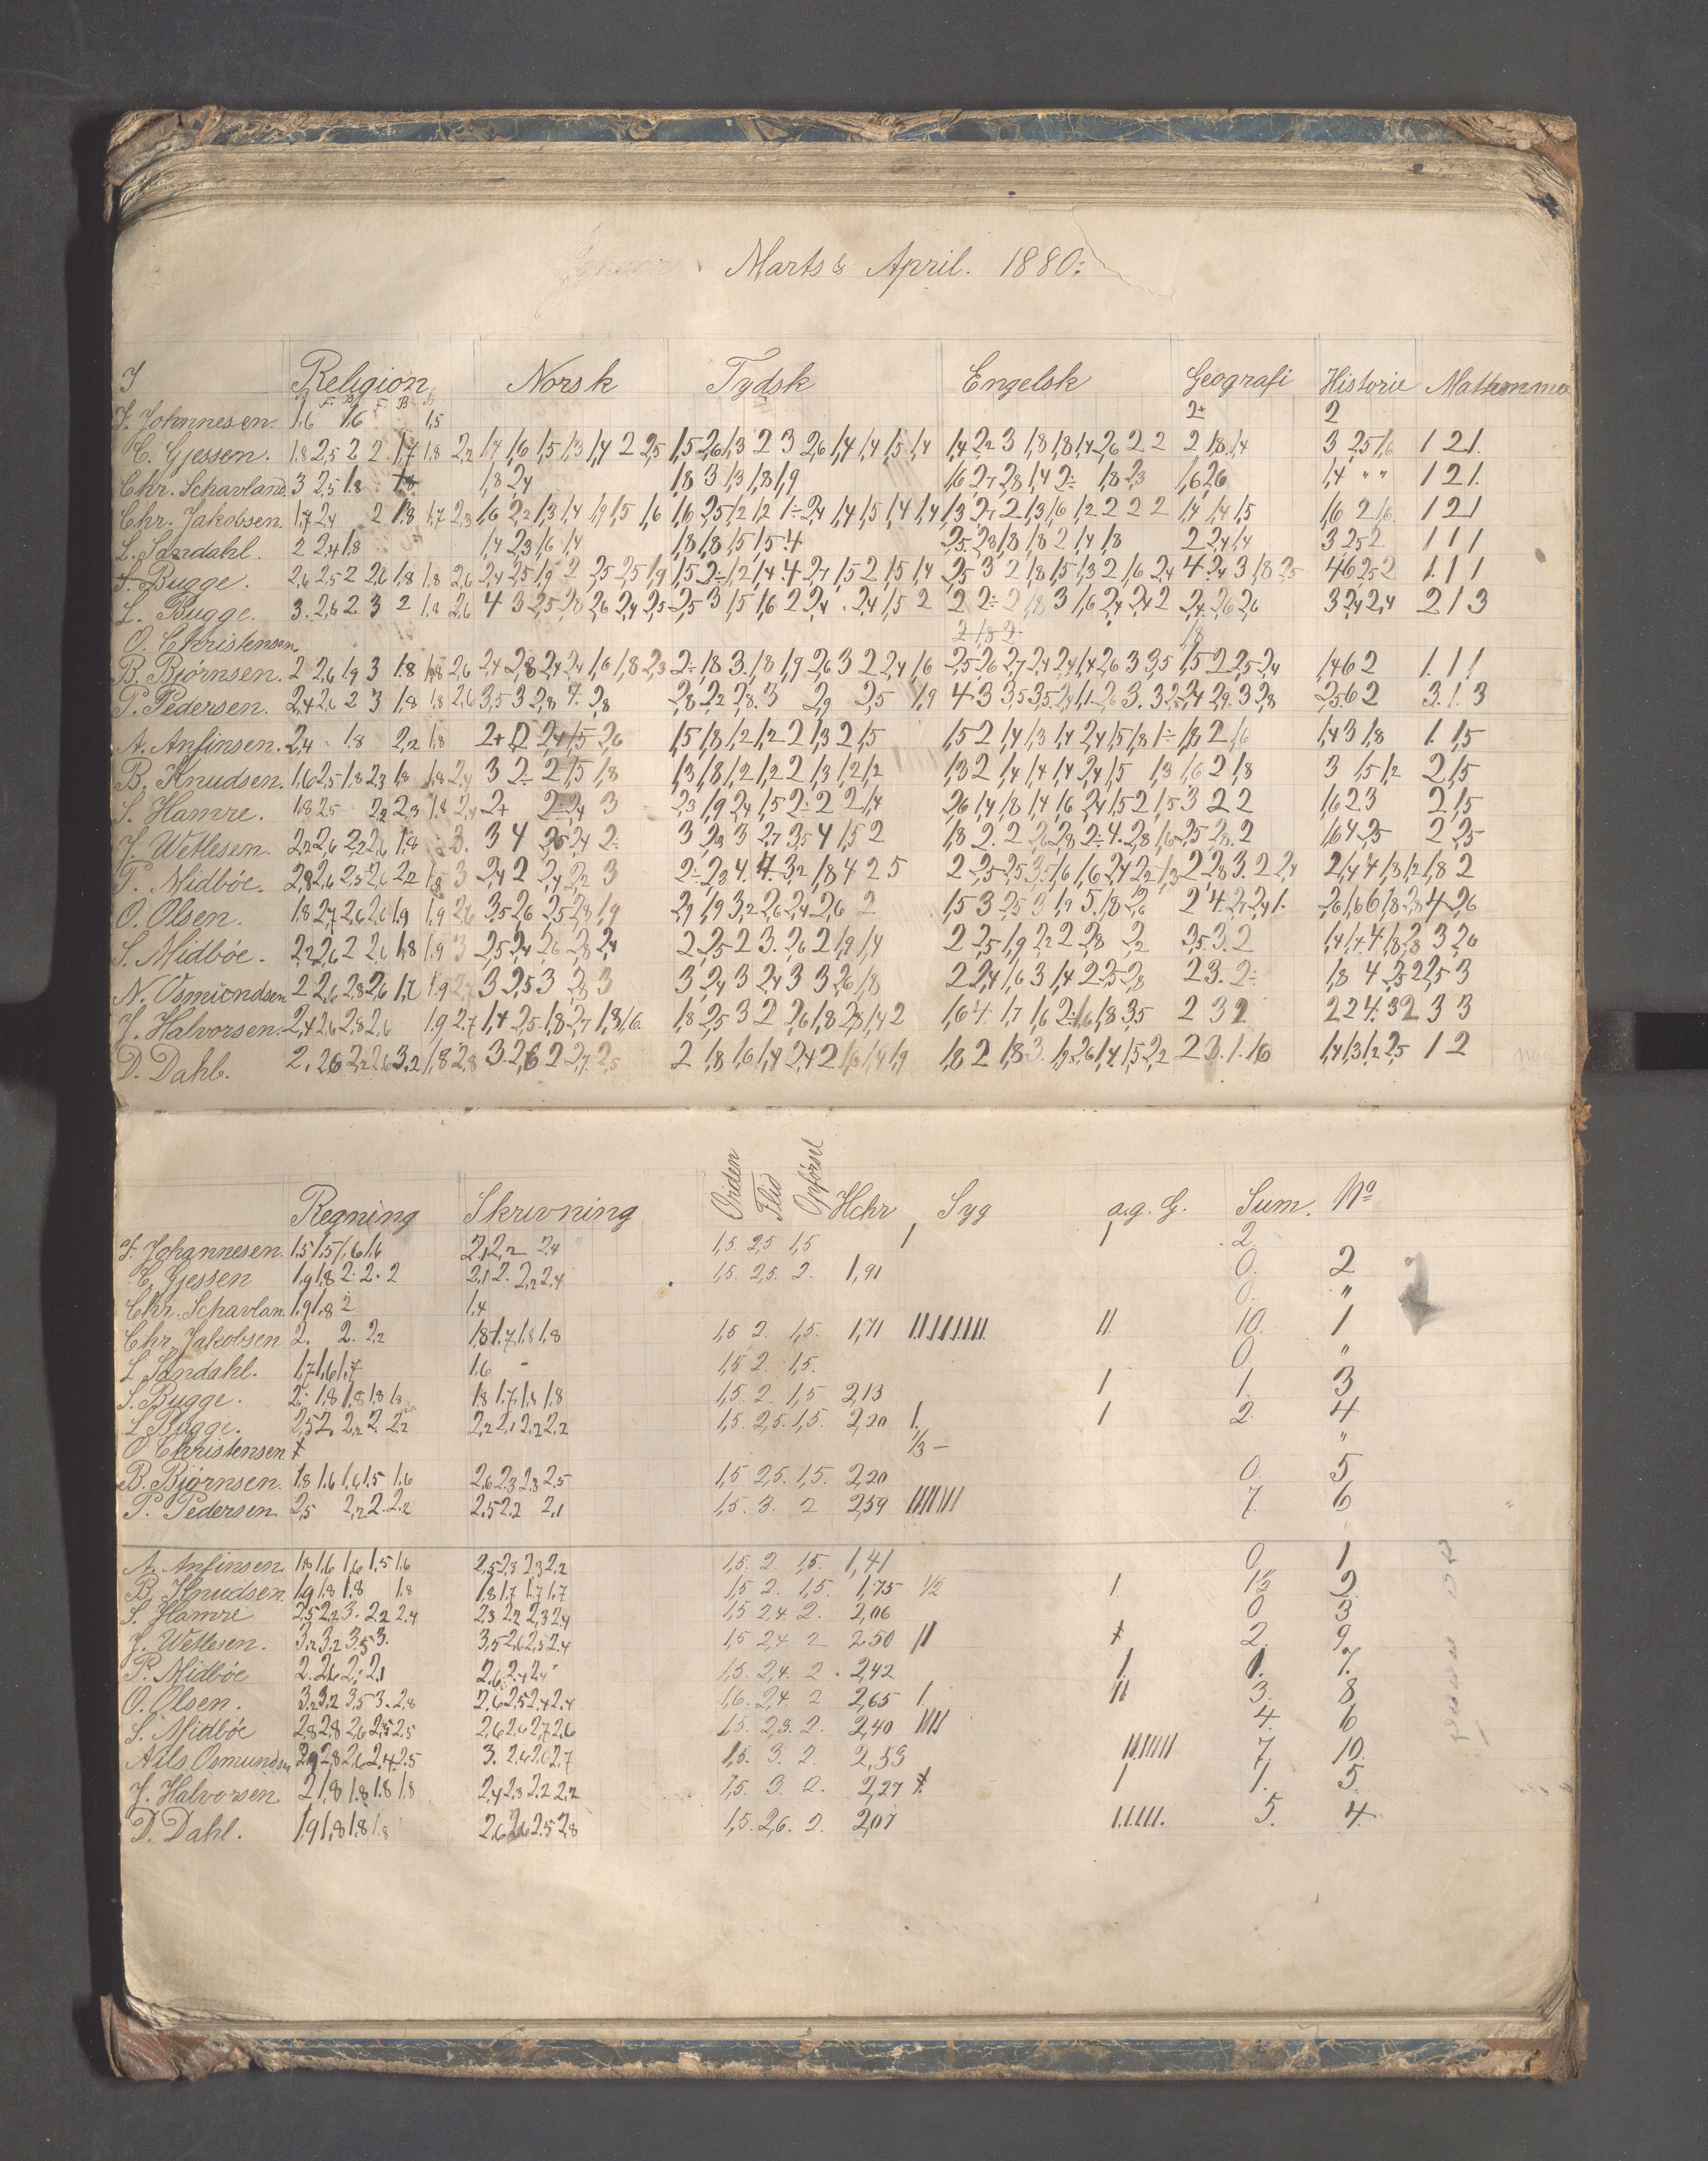 Marts & April. 1880:
I Religion Norsk Tydsk Engelsk Geografi Historie
F. Johnnesen. 1,6 1,6 1,5 2+ 2
C. Gjessen. 1,8 2,5 2 2 1,7 1,8 2,2 1,7 1,6 1,5 1,3 1,4 2 2,5 1,5 2,6 1,3 2 3 2,6 1,4 1,4 1,5 1,4 1,4 2,2 3 1,8 1,8 1,4 2,6 2 2 2 1,8 1,4 3 2,5 1,6 1 2 1.
Chr. Schavland. 3 2,5 1,8 1,8 2,4 1,8 3 1,3 1,8 1,9 1,6 2,7 2,8 1,4 2÷ 1,8 2,3 1,6 2,6 1,4 " " 1 2 1.
Chr. Jakobsen. 1,7 2,4 2 1,8 1,7 2,3 1,6 2,2 1,3 1,4 1,9 1,5 1,6 1,6 2,5 1,2 1,2 1÷ 2,4 1,4 1,5 1,4 1,4 1,3 2,7 2 1,3 1,6 1,2 2 2 2 1,4 1,4 1,5 1,6 2 1,6 1 2 1
L. Sandahl. 2 2,4 1,8 1,4 2,3 1,6 1,4 1,8 1,8 1,5 1,5 4 2,5 2,8 1,8 1,8 2 1,4 1,8 2 2,4 1,4 3 2,5 2 1 1 1
S. Bugge. 2,6 2,5 2 2,6 1,8 1,8 2,6 2,4 2,5 1,9 2 2,5 2,5 1,9 1,5 2÷ 1,2 1,4 4 2,7 1,5 2 1,5 1,4 2,5 3 2 1,8 1,5 1,3 2 1,6 2,4 4 2,4 3 1,8 2,5 4 6 2,5 2 1 1 1
L. Bugge. 3. 2,6 2 3 2 1,8 2,6 4 3 2,5 2,8 2,6 2,4 2,5 2,5 3 1,5 1,6 2 2,4 2,4 1,5 2 2 2÷ 2 1,8 3 1,6 2,4 2,4 2 2,4 2,6 2,6 3 2,4 2,4 2 1 3
O. Christensen 2 1,8 2 1,8
B. Bjørnsen. 2 2,6 1,9 3 1,8 1,8 2,6 2,4 2,8 2,4 2,4 1,6 1,8 2,3 2÷ 1,8 3 1,8 1,9 2,6 3 2 2,4 1,6 2,5 2,6 2,7 2,4 2,4 1,4 2,6 3 3,5 1,5 2 2,5 2,4 1,4 6 2 1. 1 1
P. Pedersen. 2,4 2,6 2 3 1,8 1,8 2,6 3,5 3 2,8 4. 2,8 2,8 2,2 2,8 3 2,9 2,5 1,9 2,5 6 2 3. 1. 3
A. Anfinsen. 2,4 1,8 2,2 1,8 2+ 2 2,4 1,5 2,6 1,5 1,8 1,2 1,2 2 1,3 2 1,5 1,5 2 1,4 1,3 1,4 2,4 1,5 1,8 1÷ 1,8 2 1,6 1,4 3 1,8 1. 1,5
B. Knudsen. 1,6 2,5 1,8 2,3 1,8 1,8 2,4 3 2÷ 2 1,5 1,8 1,3 1,8 1,2 1,2 2 1,3 1,2 1,2 1,3 2 1,4 1,4 1,4 2,4 1,5 1,3 1,6 2 1,8 3 1,5 1,2 2 1,5
S. Hamre. 1,8 2,5 2,2 2,3 1,8 2,4 2+ 2 2,4 3 2,3 1,9 2,4 1,5 2÷ 2 2 1,4 2,6 1,4 1,8 1,4 1,6 2,4 1,5 2 1,5 3 2 2 1,6 2 3 2 1,5
J. Wetlesen. 2,2 2,6 2,2 2,6 1,8 3. 3 4 2,6 2,4 2÷ 3 2,3 3 2,7 3,5 4 1,5 2 1,8 2. 2 2,6 2,8 2÷ 4. 2,8 1,6 2,5 2,8 2 1,6 4 2,5 2 2,5
P. Midbøe. 2,8 2,6 2,3 2,6 2,2 1,8 3 2,4 2 2,4 2,2 3 2÷ 2,3 4. 4. 3,2 1,8 4 2 5 2 2,5 2,5 3,5 1,6 1,6 2,4 2,2 1,3 2 2,8 3. 2 2,4 2 1,4 4 1,3 1,2 1,8 2
O. Olsen. 1,8 2,7 2,6 2,6 1,9 1,9 2,6 3,5 2,6 2,5 2,8 1,9 2,9 1,9 3,2 2,6 2,4 2,6 2 1,5 3 2,5 3 1,9 5 1,8 2,6 2 4. 2,2 2,4 1. 2,6 1,6 6 1,8 2,8 4 2,6
S. Midbøe. 2,2 2,6 2 2,6 1,8 1,9 3 2,5 2,4 2,6 2,8 2,4 2 2,5 2 3. 2,6 2 1,9 1,4 2 2,5 1,9 2,2 2 2,8 2,2 3,5 3. 2 1,4 1,4 4 1,8 2,8 3 2,6
N. Osmundsen 2 2,6 2,8 2,6 1,7 1,9 2,7 3 2,5 3 2,8 3 3 2,4 3 2,4 3 3 2,6 1,8 2 2,4 1,6 3 1,4 2 2,5 2,8 2 3. 2÷ 1,8 4 2,5 2 2,5 3
J. Halvorsen. 2,4 2,6 2,8 2,6 1,9 2,7 1,4 2,5 1,8 2,7 1,8 1,6 1,8 2,5 3 2 2,6 1,8 2,8 1,4 2 1,6 4. 1,7 1,6 2÷ 1,6 1,8 3,5 2 3 2 2 2 4. 3 2 3 3
D. Dahl. 2. 2,6 2,2 2,6 3,2 1,8 2,8 3. 2,6 2 2,7 2,5 2 1,8 1,6 1,4 2,4 2 1,6 1,4 1,9 1,8 2 1,8 3. 1,9 2,6 1,4 1,5 2,2 2 3. 1. 1,6 1,4 1,3 1,2 2,5 1 2
Regning Skrivning Orden Flid Opførsel Hchr Syg a.g. G. Sum. No
F. Johannesen. 1,5 1,5 1,6 1,6 2,1 2,2 2,4 1,5. 2,5 1,5 1 1 2.
C. Gjessen 1,9 1,8 2. 2. 2 2,1 2. 2,2 2,4 1,5. 2,5. 2. 1,91 0. 2
Chr. Schavlan. 1,9 1,8 2 1,4 0. "
Chr. Jakobsen 2. 2. 2,2 1,8 1,7 1,8 1,8 1,5 2. 1,5. 1,71 11111111 11. 10. 1
L Sandahl. 1,7 1,6 1,7 1,6 - 1,5 2. 1,5. 0. "
S. Bugge. 2. 1,8 1,8 1,8 1,8 1,8 1,7 1,8 1,8 1,5. 2. 1,5 2,13 1 1. 3
L Bugge. 2,5 2. 2,2 2. 2,2 2,2 2,1 2,2 2,2 1,5. 2,5. 1,5. 2,20 1. 1 2. 4
O. Christensen 1/3 - "
B. Bjørnsen. 1,8 1,6 1,6 1,5 1,6 2,6 2,3 2,3 2,5 1,5 2,5. 1,5. 2,20 0. 5
P. Pedersen. 2,5 2,2 2. 2,2 2,5 2,2 2,1 1,5. 3. 2 2,59 1111111 7. 6
A. Anfinsen. 1,8 1,6 1,6 1,5 1,6 2,5 2,3 2,3 2,2 1,5. 2. 1,5. 1,41 0. 1.
B. Knudsen. 1,9 1,8 1,8 1,8 1,8 1,7 1,7 1,7 1,5 2. 1,5. 1,75 1/2 1 1½ 2.
S. Hamre 2,5 2,2 3. 2,2 2,4 2,3 2,2 2,3 2,4 1,5 2,4. 2. 2,06 0 3
J. Wetlesen. 3,2 3,2 3,5 3. 3,5 2,6 2,5 2,4 1,5 2,4. 2 2,50 11 2. 9.
P. Midbøe 2. 2,6 2. 2,1 2,6 2,4 2,4 1,5. 2,4. 2. 2,42 1. 1. 7.
O. Olsen. 3,2 3,2 3,5 3. 2,8 2,6 2,5 2,4 2,4 1,6. 2,4. 2 2,65 1. 11 3. 8.
S. Midbøe 2,8 2,8 2,6 2,5 2,5 2,6 2,6 2,7 2,6 1,5. 2,3. 2. 2,40 1111 4. 6
Nils Osmundsen 2,9 2,8 2,6 2,4 2,5 3. 2,6 2,6 2,7 1,5. 3. 2. 2,53 1111111 7. 10.
J. Halvorsen 2 1,8 1,8 1,8 1,8 2,4 2,3 2,2 2,2 1,5. 3. 2. 2,27 1 1. 5.
D. Dahl. 1,9 1,8 1,8 1,8 2,6 2,6 2,5 2,8 1,5. 2,6. 2. 2,07 11111. 5. 4.